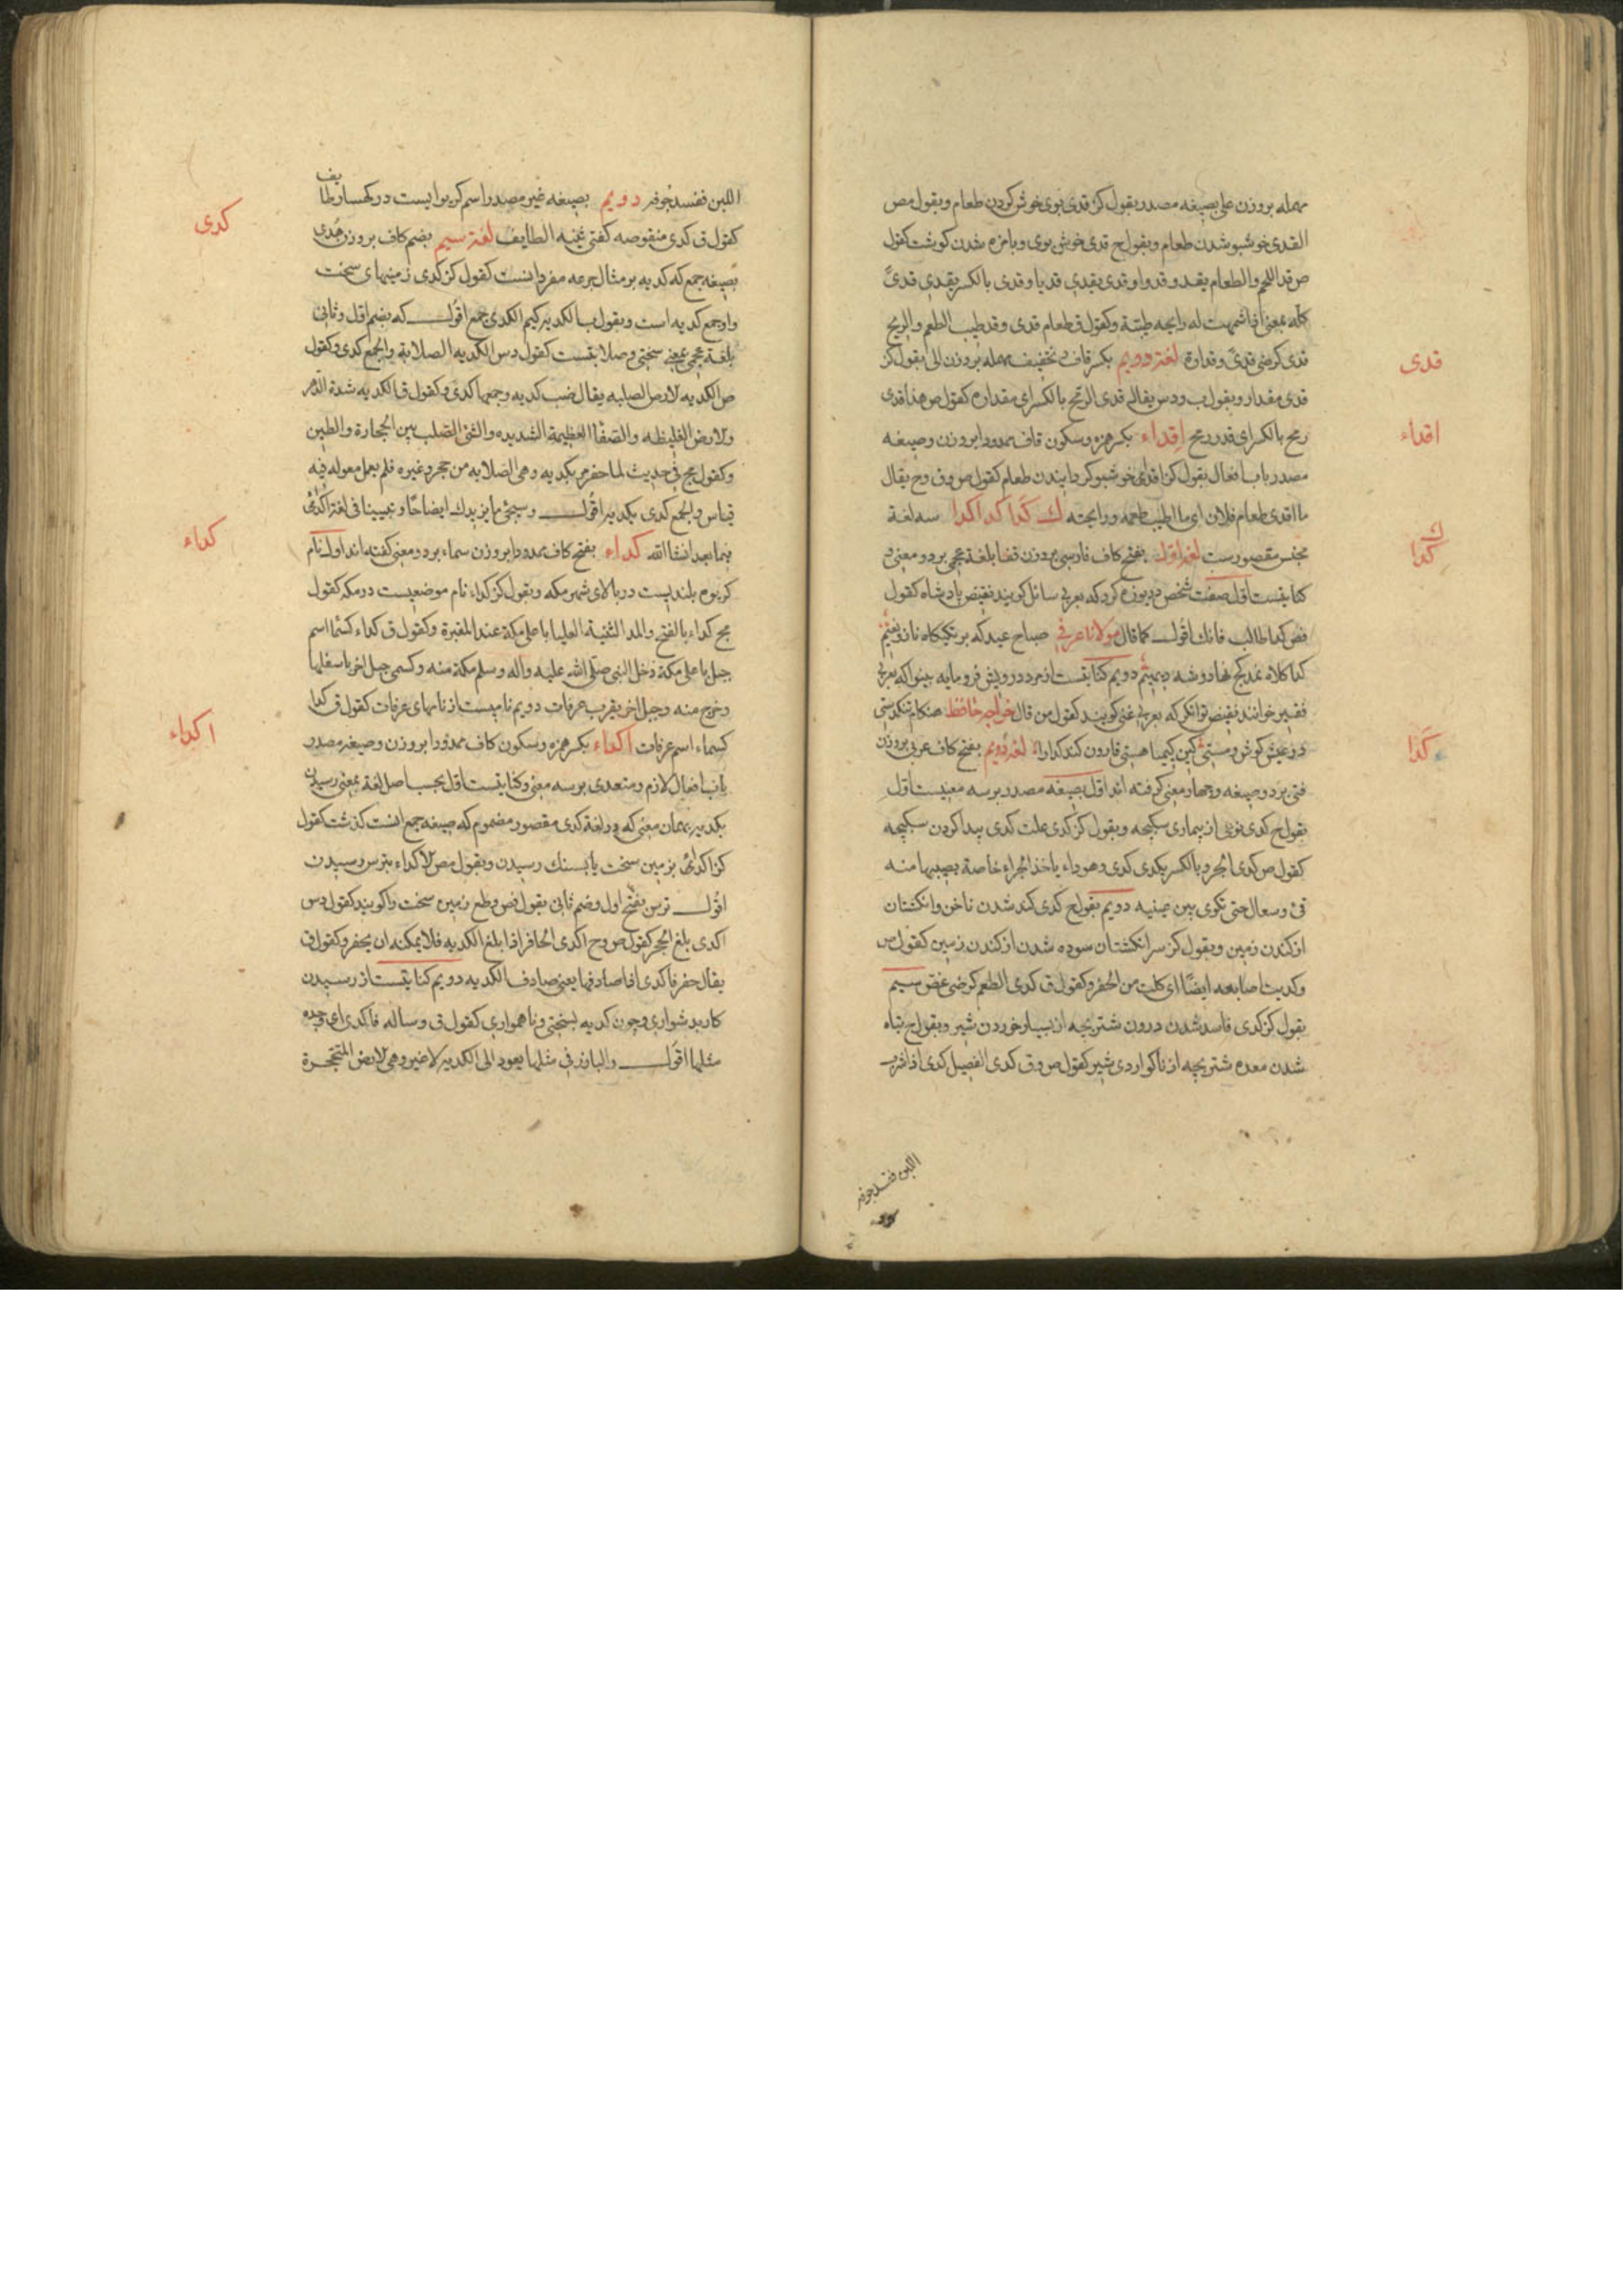 مهمله بروزن علی بصیغه مصدر بقول کز قدی بوی خوش کردن طعام و بقول مص
القدی خوشبو شدن طعام و بقول ج قدی خوش بوی و بامزه شدن کوشت کقول
ص قد اللحم والطعام یقدو قدوا و قدی یقدی قدیا و قدی بالکسر یقدی قدیً
کله بمعنی اذا شممت له رایحه طیبة و کقول ق طعام قدی و قد طیب الطعم والریح
قدی کرضی قدیً و قداوة لغة دویم بکسر قاف و تخفیف مهمله بروزن الی بقول کز
قدی مقدار و بقول ب و دس یقال قدی الرمح بالکسر ای مقداره کقول ص هذا قدی
رمح بالکسر ای قدر رمح اقداء بکسر همزه و سکون قاف ممدودا بروزن و صیغه
مصدر باب افعال بقول کز اقداء خوشبو کردانیدن طعام کقول ص و ق و ح یقال
ما اقدی طعام فلان ای ما اطیب طعمه و رایحته ک کدا کدا کدا سه لغة
مجنس مقصورست لغة اول بفتح کاف فارسی بروزن قفا بلغة عجمی بر دو معنی
کنایتست اول صفت شخص دریوزه کرد که بعربی سائل کویند نقیض پادشاه کقول
فص کدا طالب فانک اقول کما قال مولانا عرفی صباح عید که بر تکیکاه ناز و نعیم
کدا کلاه نمد کج نهاد و شه دیهیم دویم کنایتست از مرد درویش فرومایه بینوا که بعربی
فقیر خوانند نقیض توانکر که بعربی غنی کویند کقول من قال خواجه حافظ هنکام تنکدستی
در عیش کوش و مستی کین کیمیا هستی قارون کند کدا را لغة دویم بفتح کاف عربی بروزن
فتی بر دو صیغه و چهار معنی کرفته اند اول بصیغه مصدر بر سه معنیست اول
بقول ج کدی نوعی از بیماری سکبچه و بقول کز کدی علت کدی پیدا کردن سکبچه
کقول ص کدی الجرو بالکسر یکدی کدی و هو داء یاخذ الجراء خاصة یصیبها منه
قئ و سعال حتی تکوی بین عینیه دویم بقول ج کدی کند شدن ناخن و انکشتان
از کندن زمین و بقول کز سر انکشتان سوده شدن از کندن زمین کقول ص
و کدیت اصابعه ایضًا ای کلت من الحفر و کقول ق کدی الطعم کرضی غض سیم
بقول کز کدی فاسد شدن درون شتر بچه از بسیار خوردن شیر و بقول ج تباه
شدن معده شتر بچه از ناکواردی شیر کقول ص و ق کدی الفصیل کدی اذا شرب
اللبن ففسد جوفه
قدی
اقداء
ک
کدا
کدا
اللبن ففسد جوفه دویم بصیغه غیر مصدر اسم کریوه ایست در کهسار طایف
کقول ق کدی منقوصه کفتی ثنیه الطایف لغة سیم بضم کاف بروزن هدی
بصیغه جمع که کدیه بر مثال جرعه مفرد انست کقول کز کدی زمینهای سخت
و او جمع کدیه است و بقول ب الکدیه کیم الکدی جمع اقول که بضم اول و ثانی
بلغة عجمی بمعنی سختی و صلابتست کقول دس الکدیه الصلابة والجمع کدی و کقول
ص الکدیه لارض الصلبه یقال ضب کدیه و جمعها کدی و کقول ق الکدیه شدة الدهر
ولارض الغلیظه والصفاا العظیمة الشدیده والشئ الصلب بین الحجارة والطین
و کقول مج فی حدیث لما حفر مر بکدیه و هی الصلابه من حجر و غیره فلم یعمل معوله فیه
قیاس والجمع کدی بکدیه اقول و سیجئ ما یزیدک ایضاحًا و تبیینا فی لغة اکدی
فیما بعد انشا الله کداء بفتح کاف ممدودا بروزن سماء بر دو معنی کفته اند اول نام
کریوه بلندیست در بالای شهر مکه و بقول کز کداء نام موضعیست در مکه کقول
مج کداء بالفتح والمد الثنیة العلیا باعلی مکة عند المقبرة و کقول ق کداء کسما اسم
جبل باعلی مکة دخل النبی صلی الله علیه و آله و سلم مکة منه و کسمی جبل اخر باسفلها
و خرج منه و جبل اخر بقرب عرفات دویم نامیست از نامهای عرفات کقول ق کدا
کسماء اسم عرفات اکداء بکسر همزه و سکون کاف ممدودا بروزن و صیغه مصدر
باب افعال لازم و متعدی بر سه معنی و کنایتست اول بحسب اصل لغة بمعنی رسیدن
بکدیه بهمان معنی که در لغة کدی مقصور مضموم که صیغه جمع انست کذشت کقول
کز اکداء بزمین سخت یا بسنک رسیدن و بقول مص لاکداء بترس رسیدن
اقول ترس بفتح اول و ضم ثانی بقول فص و طع زمین سخت را کویند کقول دس
اکدی بلغ الحجر کقول ص و ح اکدی الحافر اذا بلغ الکدیه فلا یمکنه ان یحفر و کقول ق
یقال حفر فاکدی اذا صادفها یعنی صادف الکدیه دویم کنایتست از رسیدن
کار بدشواری و چون کدیه بسختی و ناهمواری کقول ق و ساله فاکدی ای وجده
مثلها اقول والبارز فی مثلها یعود الی الکدیه لاغیر و هی لارض المتحجرة
کدی
کداء
اکداء